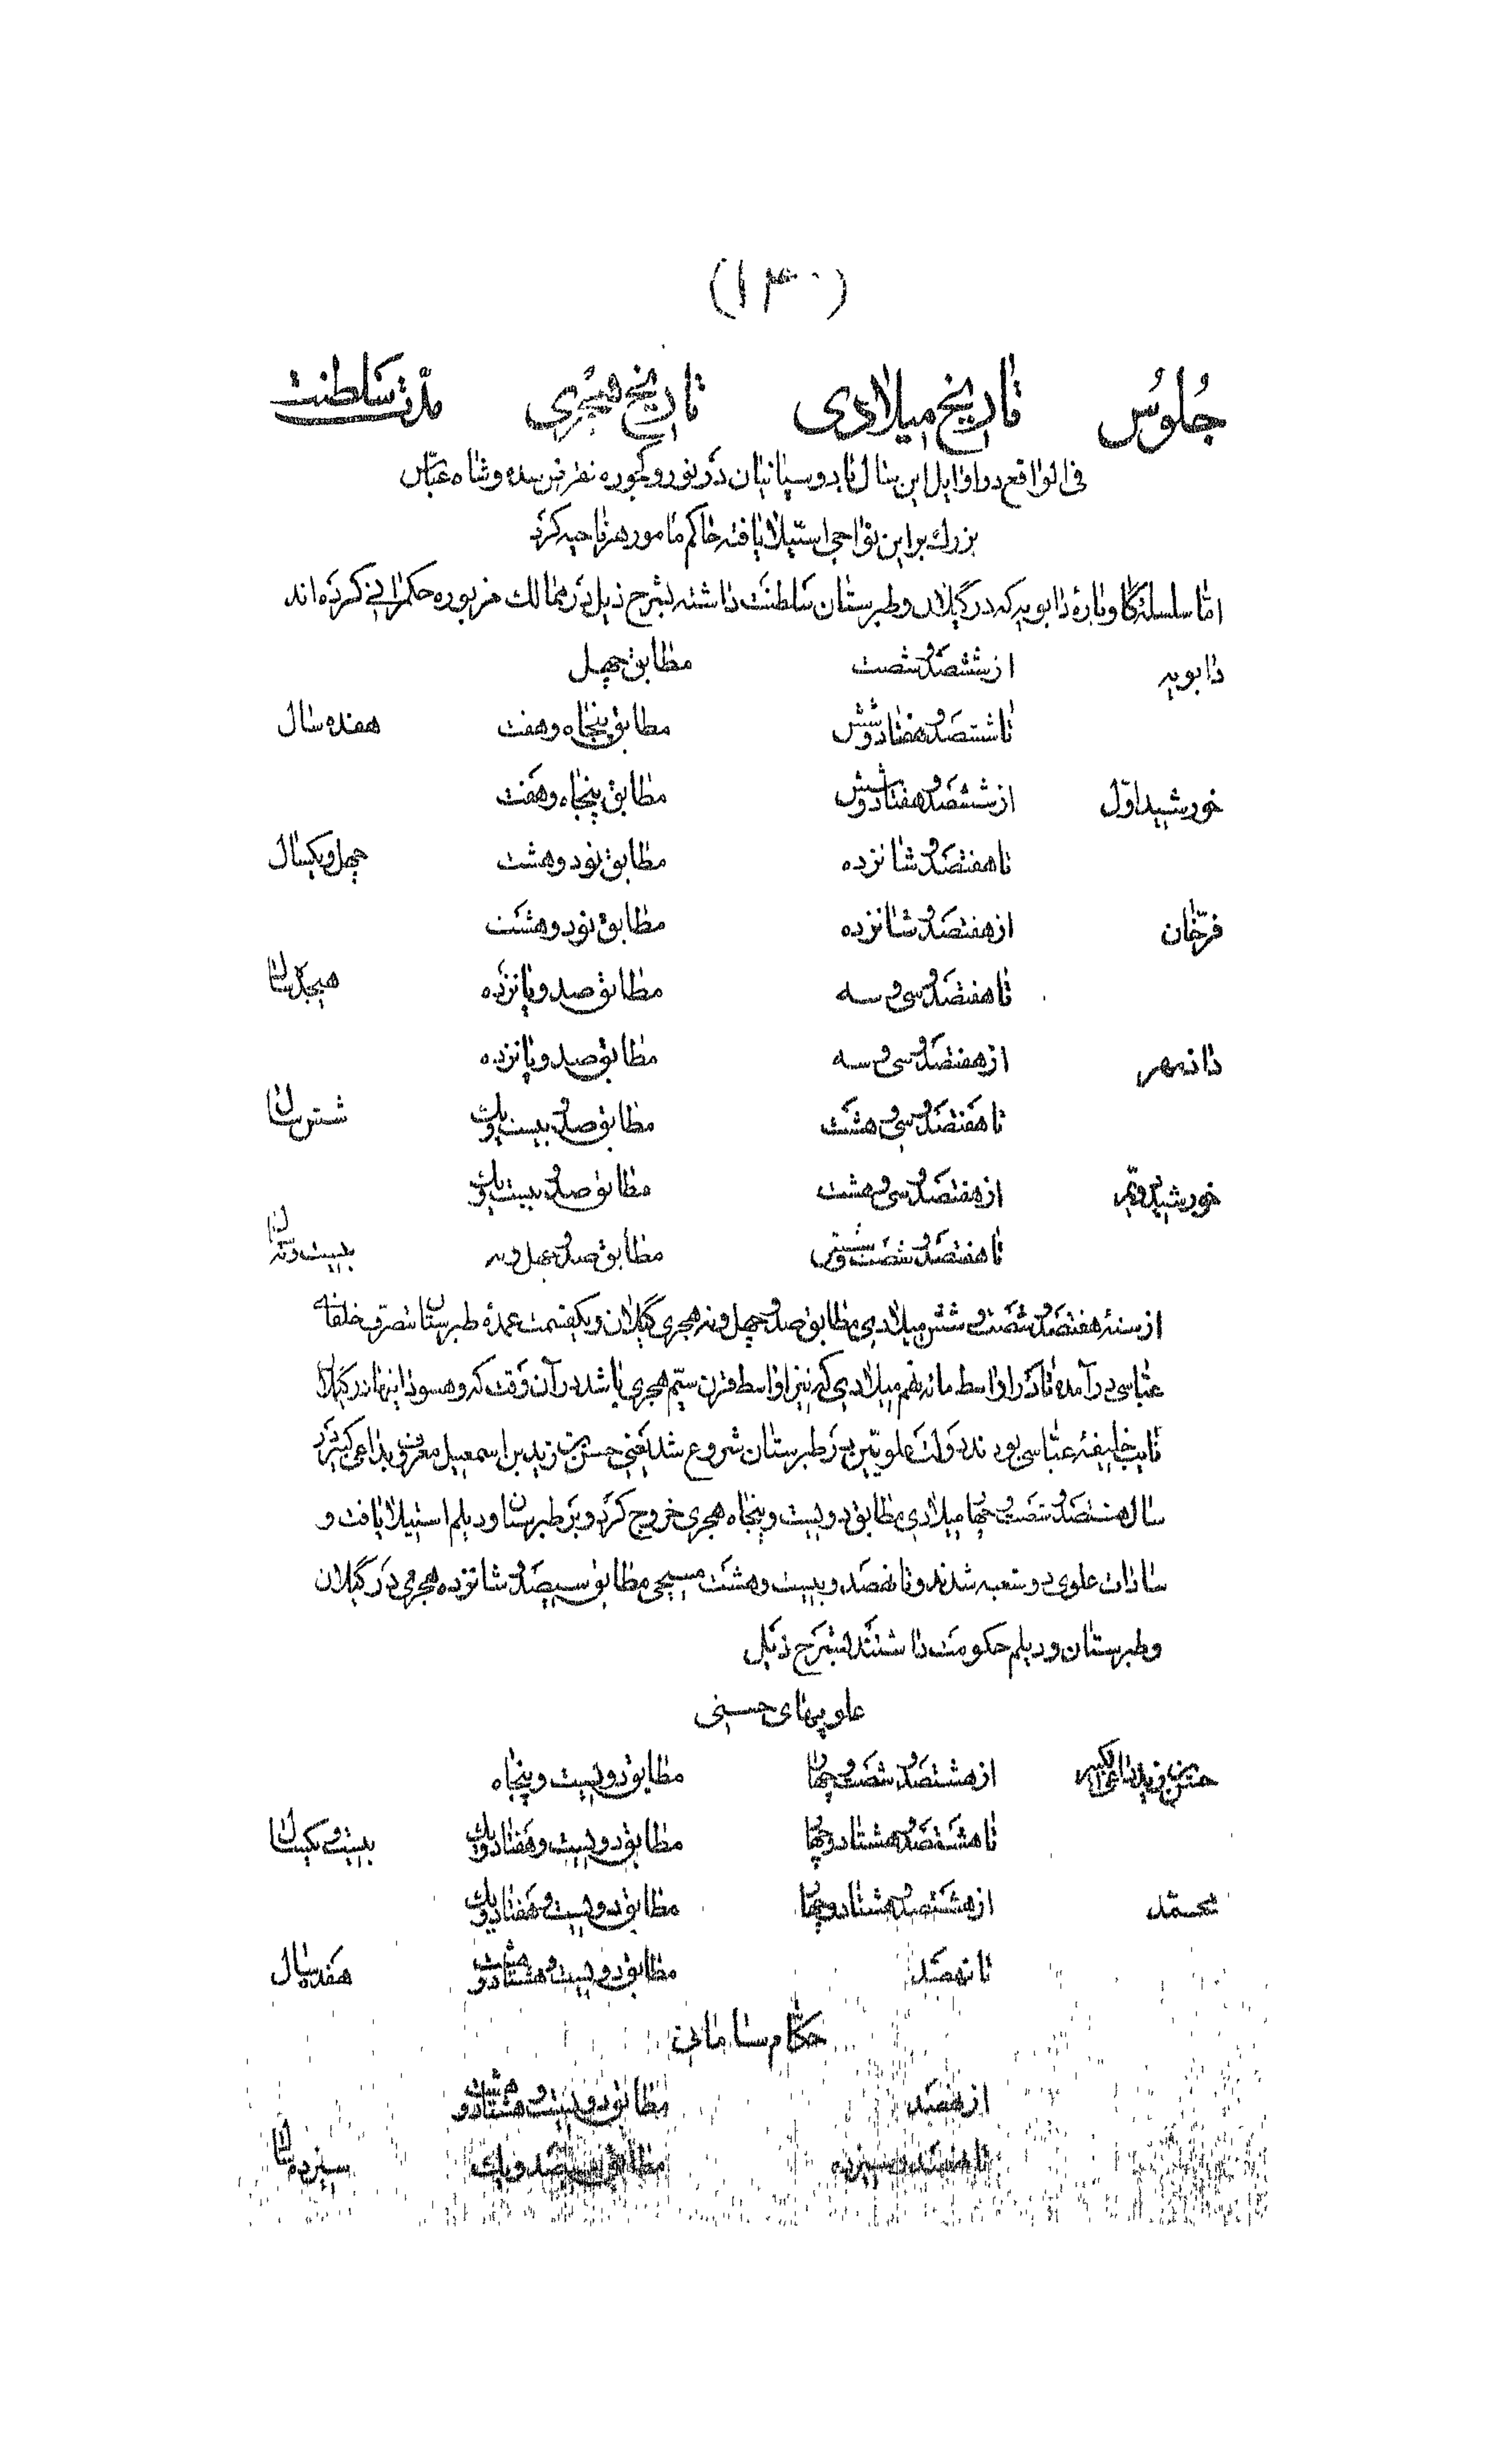 (۱۴۰)
جلوس تاریخ میلادی تاریخ هجری مدّت سلطنت
فی الواقع در اوایل این سال پادوسپانیان در نور و کجور نفر رسیده و شاه عبّاس
بزرك بر این نواحی استیلا یافته حاکم مامور هر ناحیه کرد
امّا سلسلهٔ گاوبارهٔ دابویه که در گیلان و طبرستان سلطنت داشته بشرح ذیل در ممالك مزبوره حکمرانی کرده اند
دابویه از ششصد و شصت مطابق چهل
تا ششصد و هفتاد و شش مطابق پنجاه و هفت هفده سال
خورشید اوّل از ششصد و هفتاد و شش مطابق پنجاه و هفت
تا هفتصد و شانزده مطابق نود و هشت چهل و یکسال
فرّخان از هفتصد و شانزده مطابق نود و هشت
تا هفتصد و سی و سه مطابق صد و پانزده هیجده سال
دازمهر از هفتصد و سی و سه مطابق صد و پانزده
تا هفتصد و سی و هشت مطابق صد و بیست و یك شش سال
خورشید دویّم از هفتصد و سی و هشت مطابق صد و بیست و یك
تا هفتصد و شصت و شش مطابق صد و چهل و نه بیست و نه سال
از سنهٔ هفتصد و شصت و شش میلادی مطابق صد و چهل و نه هجری گیلان و یکقسمت عمدهٔ طبرستان بتصرف خلفای
عبّاسی در آمده تا در اواسط مائه نهم میلادی که نیز اواسط قرن سیّم هجری باشد در آن وقت که وهسودانیها در گیلان
نایب خلیفهٔ عبّاسی بودند دولت علویّین در طبرستان شروع شد یعنی حسن بن زید بن اسمعیل معروف بداعی کبیر در
سال هشتصد و شصت و چهار میلادی مطابق دویست و پنجاه هجری خروج کرد و بر طبرستان و دیلم استیلا یافت و
سادات علوی دو شعبه شدند و تا نهصد و بیست و هشت مسیحی مطابق سیصد و شانزده هجری در گیلان
و طبرستان و دیلم حکومت داشتند بشرح ذیل
علویهای حسنی
حسن بن زید داعی الکبیر از هشتصد و شصت و چهار مطابق دویست و پنجاه
تا هشتصد و هشتاد و چهار مطابق دویست و هفتاد و یك بیست و یکسال
محمّد از هشتصد و هشتاد و چهار مطابق دویست و هفتاد و یك
تا نهصد مطابق دویست و هشتاد و هشت هفده سال
حکّام سامانی
از نهصد مطابق دویست و هشتاد و هشت
تا نهصد و سیزده مطابق سیصد و یك سیزده سال